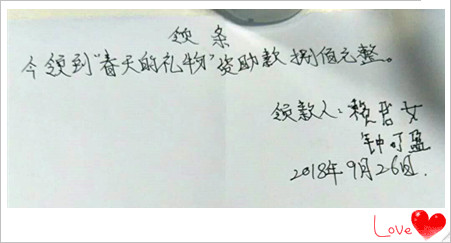 领条
今领到“春天的礼物”资助款捌佰元整。
领款人：赖吉女
钟可盈
2018年9月26日.
Love